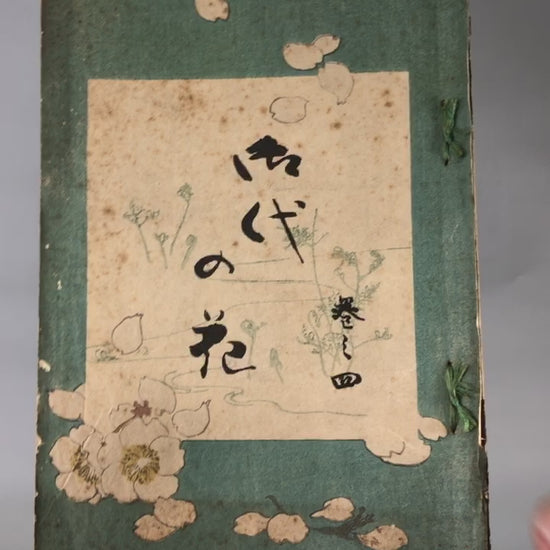 御代の花
巻之四